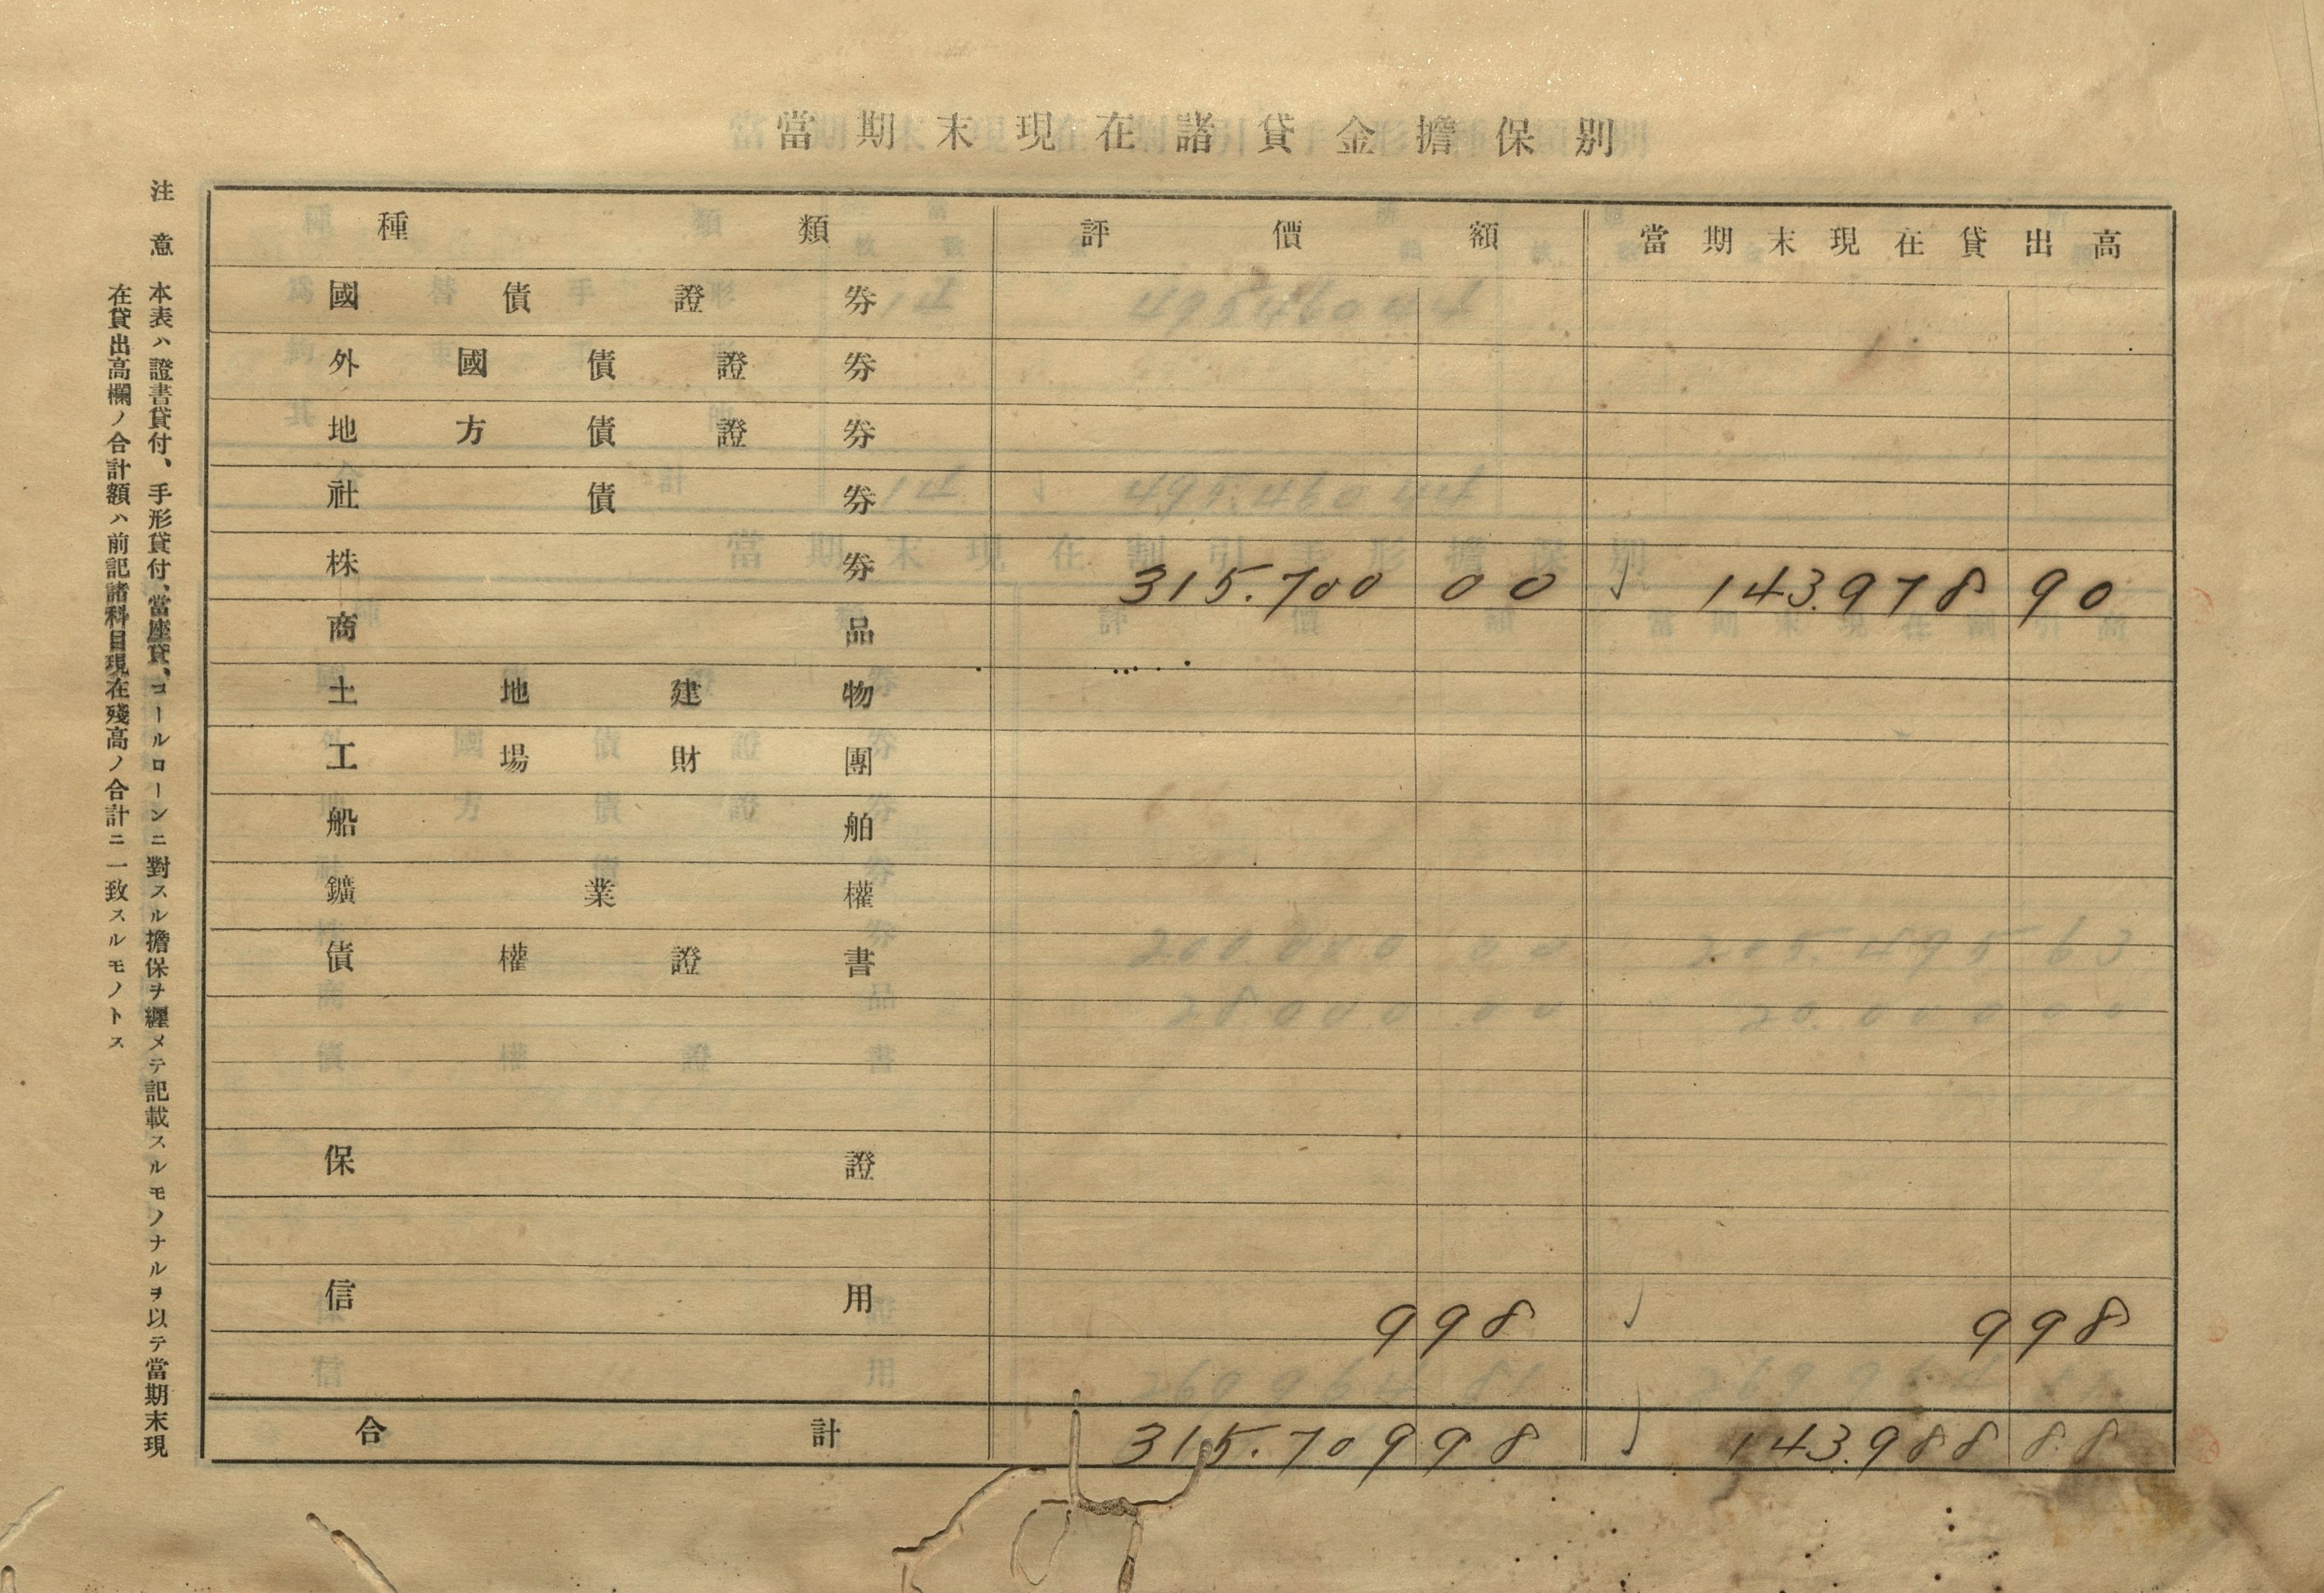 當期末現在諸貸金擔保別
種類 評價額 當期末現在貸出高
國債證券
外國債證券
地方債證券
社債券
株券 315.700 00 143.978 90
商品
土地建物
工場財團
船舶
鑛業權
債權證書
保證
信用 9 98 9 98
合計 315.709 98 143.988 88
注意 本表ハ證書貸付、手形貸付、當座貸、コールローンニ對スル擔保ヲ纒メテ記載スルモノナルヲ以テ當期末現
在貸出高欄ノ合計額ハ前記諸科目現在殘高ノ合計ニ一致スルモノトス